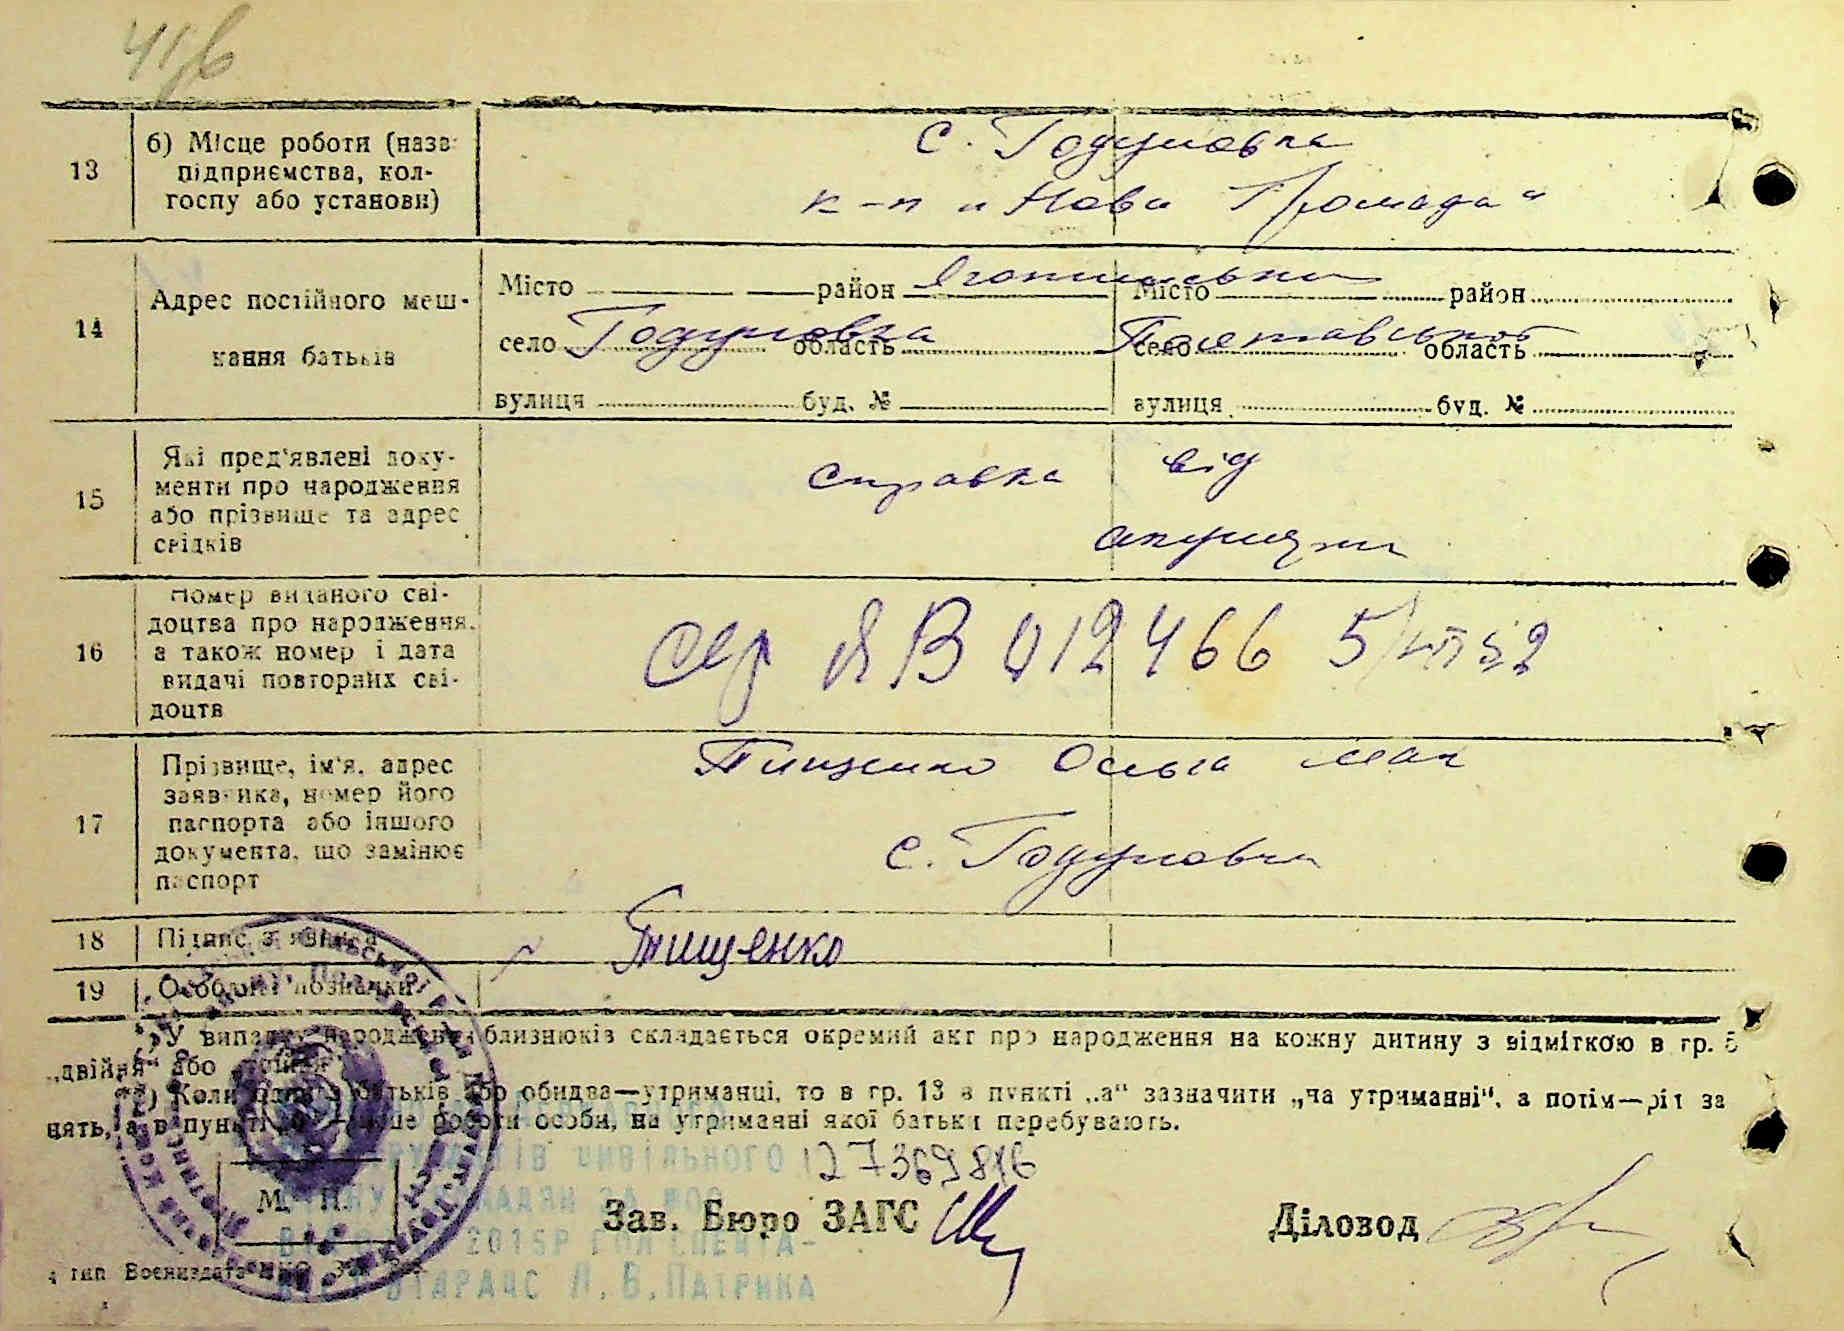 41/6
13
б) Місце роботи (назв
підприємства, кол-
госпу або установи)
с. Годуновка
к-п „Нова Громада"
14
Адрес постійного меш-
кання батьків
Місто район Яготинська Місто район
село Годуновка область Полтавської село область
вулиця буд. № вулиця буд. №
15
Які пред'явлені доку-
менти про народження
або прізвище та адрес
свідків
справка від
акушерки
16
Номер виданого сві-
доцтва про народження,
а також номер і дата
видачі повторних сві-
доцтв
сер ЯВ 012466 5/ 52
17
Прізвище, ім'я, адрес
заявника, номер його
паспорта або іншого
документа, що замінює
паспорт
Тищенко Ольга Мак
с. Годуновка
18 Підпис заявника Тищенко
19 Особливі познанки
) У випадку народження близнюків складається окремий акт про народження на кожну дитину з відміткою в гр. 5
„двійня" або
) Коли батьків або обидва—утриманці, то в гр. 13 в пункті „а" зазначити „на утриманні", а потім—рід за
нять, а в пункті роботи особи, на утриманні якої батьки перебувають.
ЦИВІЛЬНОГО 127369816
М. П.
Зав. Бюро ЗАГС
Діловод
2015Р
Л.В.ПАТРИКА
4 тип Воениздата